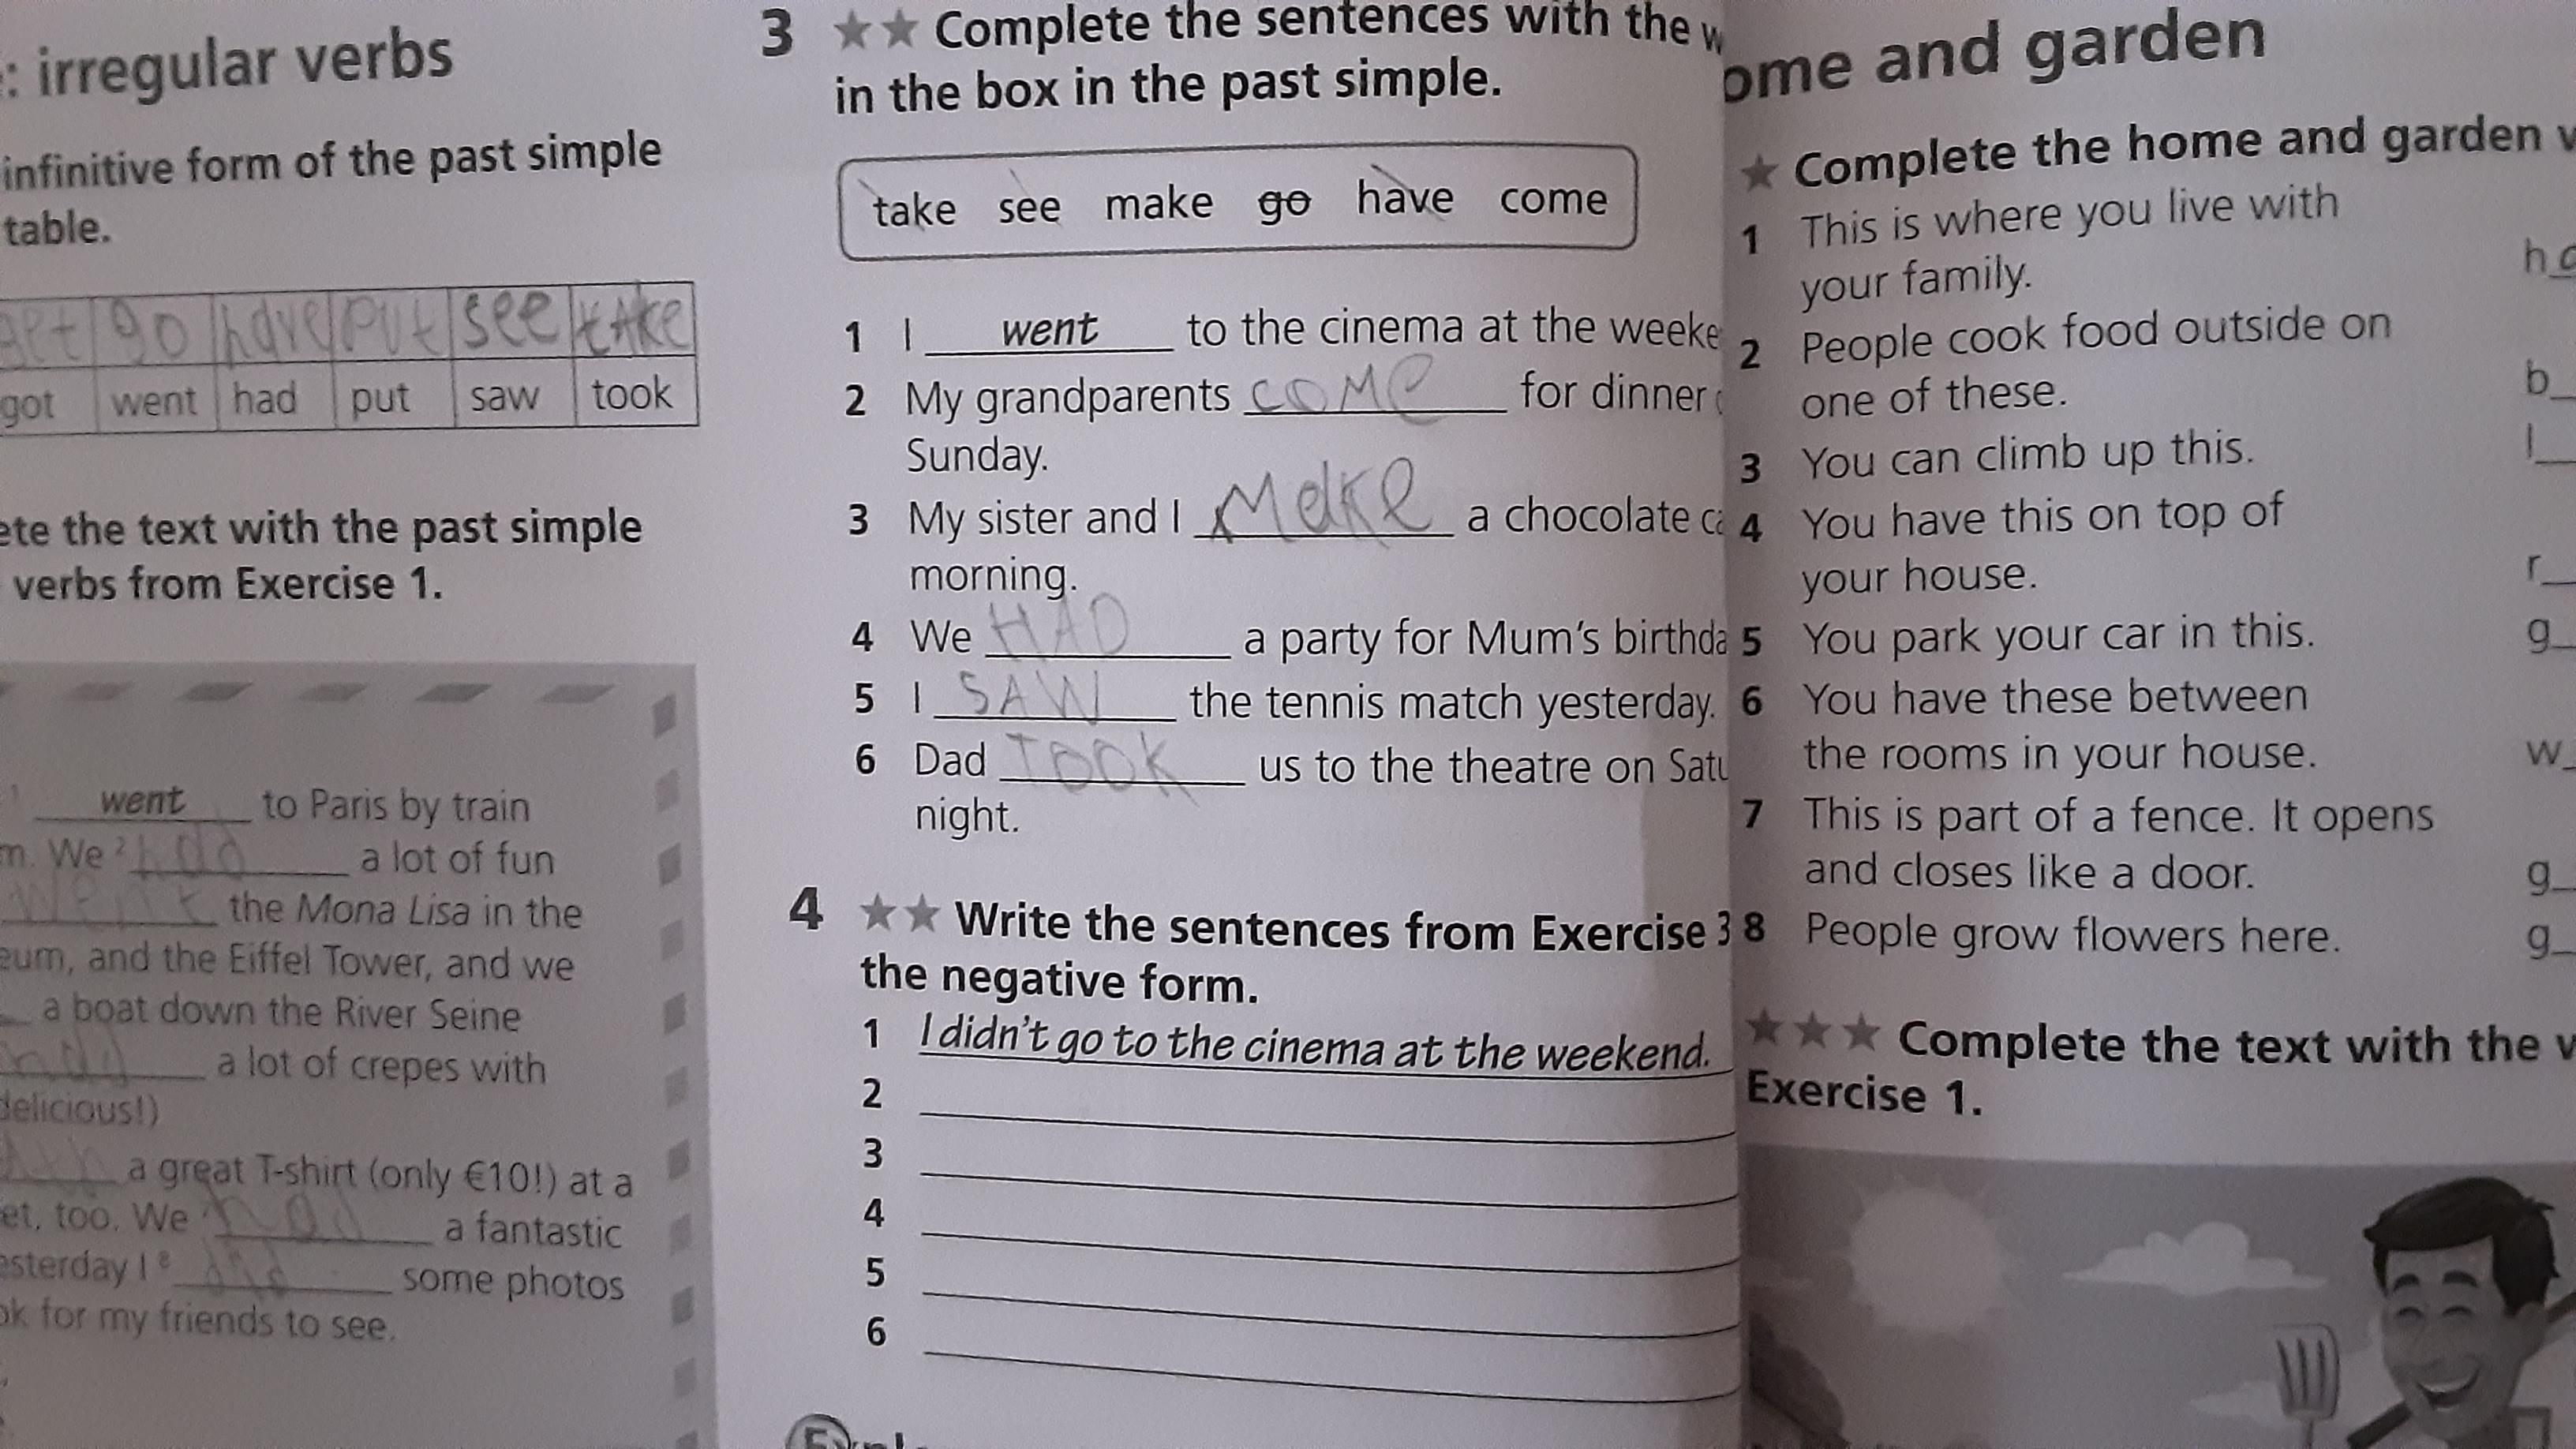 : irregular verbs
infinitive form of the past simple
table.
get go have put see take
got went had put saw took
ete the text with the past simple
verbs from Exercise 1.
1 went to Paris by train
m. We 2 had a lot of fun
went the Mona Lisa in the
eum, and the Eiffel Tower, and we
a boat down the River Seine
had a lot of crepes with
delicious!)
a great T-shirt (only €10!) at a
et, too. We had a fantastic
esterday I 8 some photos
ok for my friends to see.
3 ★★ Complete the sentences with the w
in the box in the past simple.
take see make go have come
1 I went to the cinema at the weeke
2 My grandparents come for dinner
Sunday.
3 My sister and I make a chocolate ca
morning.
4 We HAD a party for Mum's birthda
5 I SAW the tennis match yesterday.
6 Dad TOOK us to the theatre on Satu
night.
4 ★★ Write the sentences from Exercise 3
the negative form.
1 I didn't go to the cinema at the weekend.
2
3
4
5
6
ome and garden
★ Complete the home and garden w
1 This is where you live with
your family. ho
2 People cook food outside on
one of these. b
3 You can climb up this. l
4 You have this on top of
your house. r
5 You park your car in this. g
6 You have these between
the rooms in your house. w
7 This is part of a fence. It opens
and closes like a door. g
8 People grow flowers here. g
★★★ Complete the text with the w
Exercise 1.